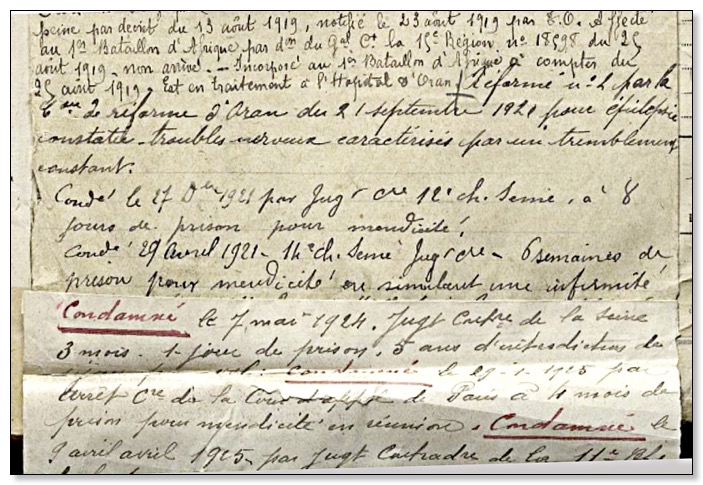 peine par décret du 13 août 1919, notifié le 23 août 1919 par S.O. Affecté
au 1er Bataillon d'Afrique par don du Gal Ct la 15e Région no 18598 du 25
août 1919. non arrivé. - Incorporé au 1er Bataillon d'Afrique à compter du
25 août 1919. Est en traitement à l'Hopital d'Oran / Réformé no 2 par la
Con de réforme d'Oran du 21 septembre 1920 pour épilepsie
constatée troubles nerveux caractérisés par un tremblement
constant.
Condé le 27 Dbre 1921 par Jugt cre 12e ch. Seine, à 8
jours de prison pour mendicité.
Condé 29 Avril 1921 - 14e ch. Seine Jugt cre - 6 semaines de
prison pour mendicité en simulant une infirmité
Condamné le 7 mai 1924. Jugt Contre de la Seine
3 mois. 1 jour de prison. 5 ans d'interdiction de
Condamné le 29-1-1925 par
arrêt Cre de la Cour d'appel de Paris à 4 mois de
prison pour mendicité en réunion. Condamné le
9 avril avril 1925 par Jugt Contradre de la 11e